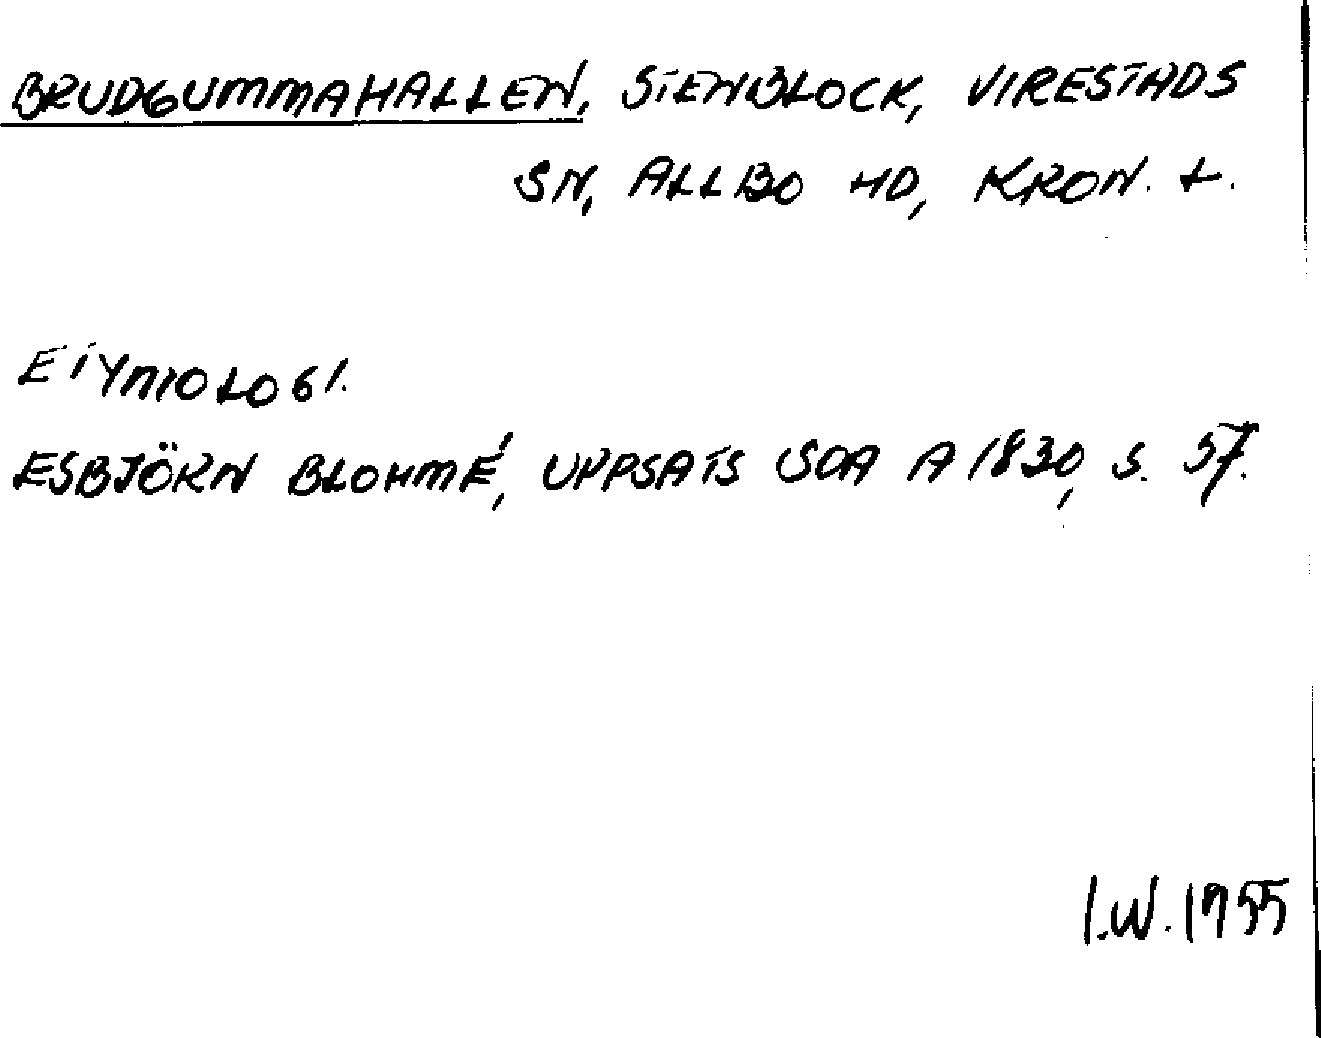 BRUDGUMMAHALLEN, STENBLOCK, VIRESTADS
SN, ALLBO HD, KRON. L.
ETYMOLOGI.
ESBJÖRN BLOHMÉ, UPPSATS SOA A 1830, S. 57.
I.W. 1955